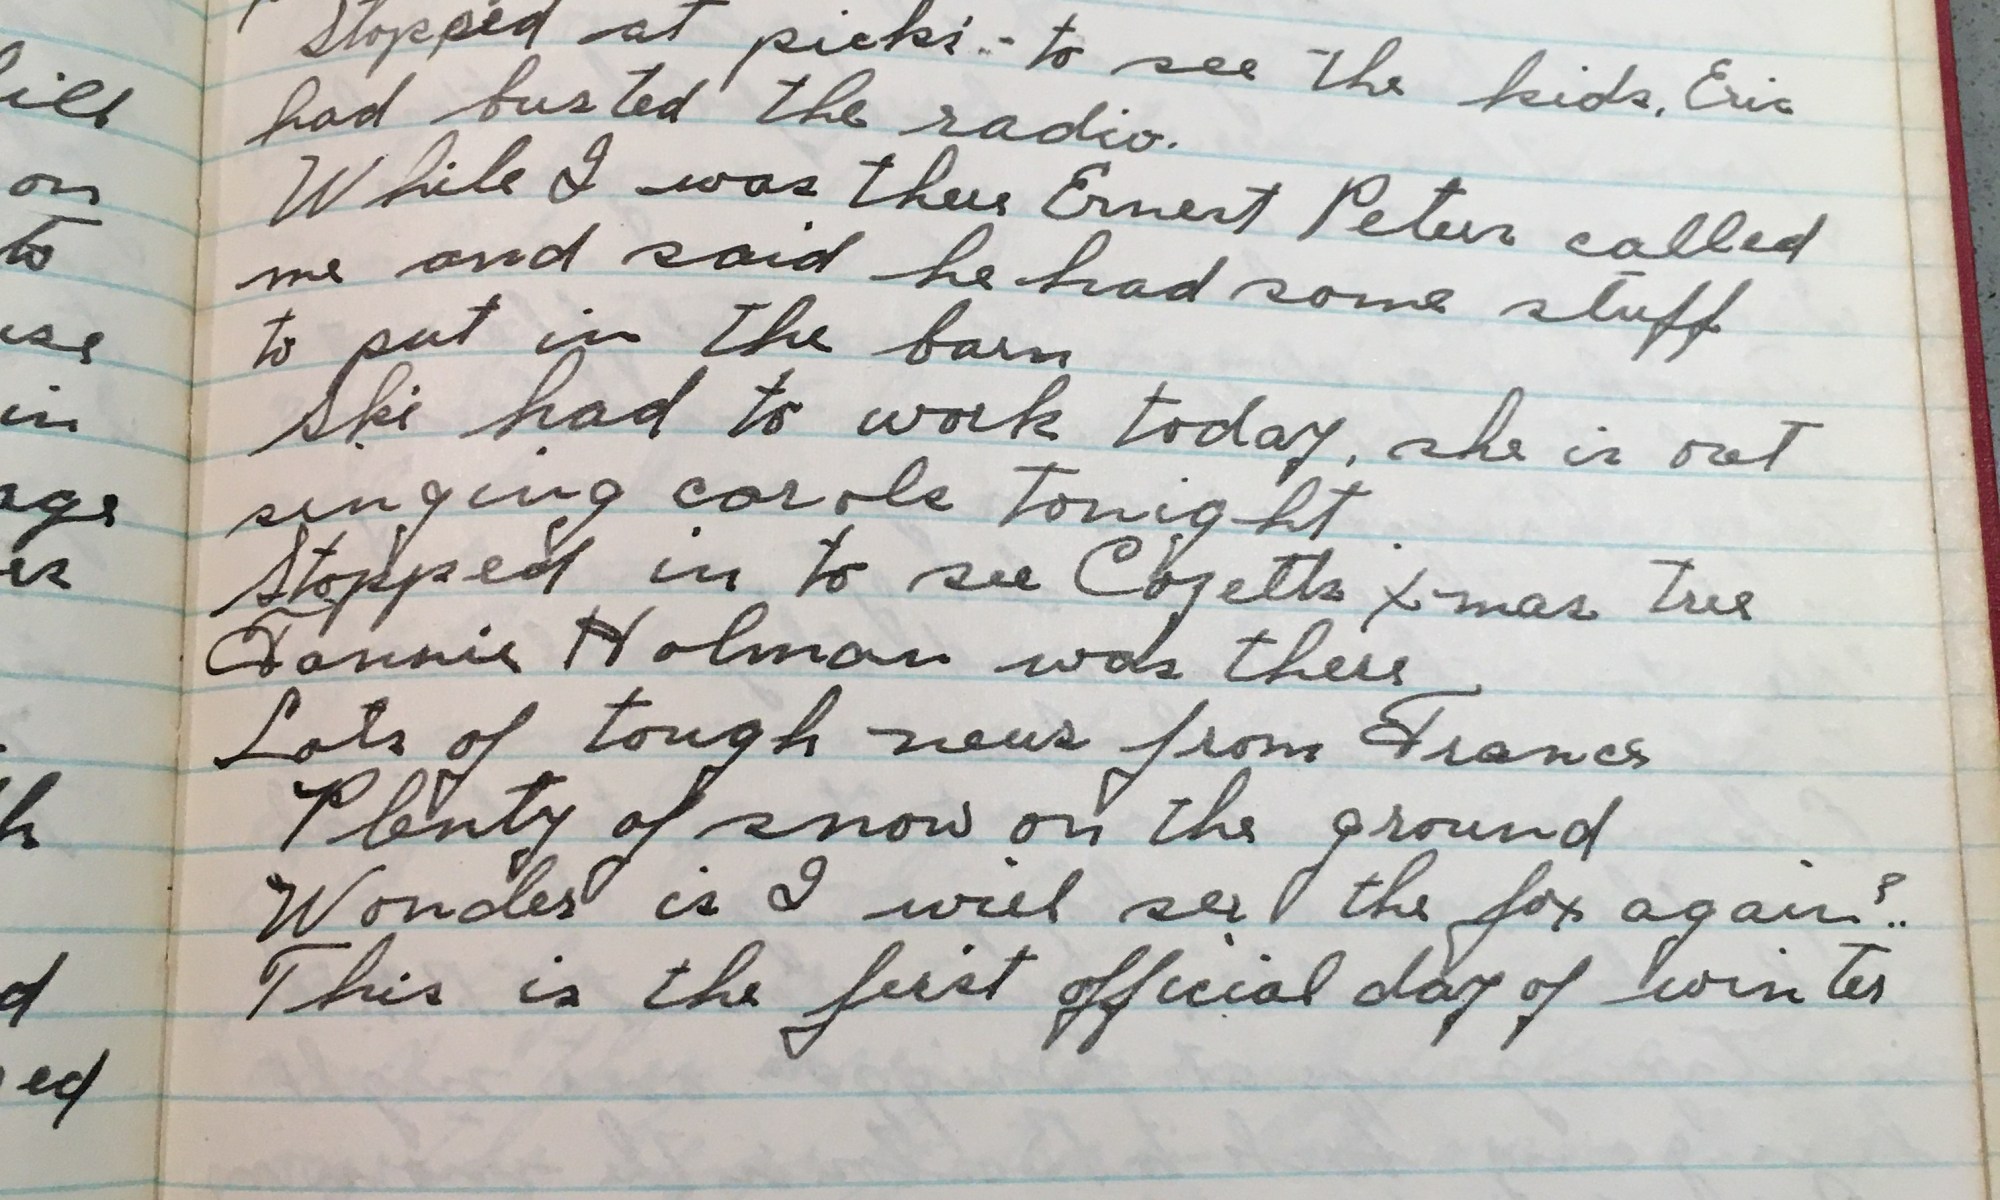 Stopped at picks - to see the kids, Eric
had busted the radio.
While I was there Ernest Peters called
me and said he had some stuff
to put in the barn
Ski had to work today, she is out
singing carols tonight
Stopped in to see Cozetts x-mas tree
Fannie Holman was there
Lots of tough news from France
Plenty of snow on the ground
Wonder is I will see the fox again?..
This is the first official day of winter
on
to
in